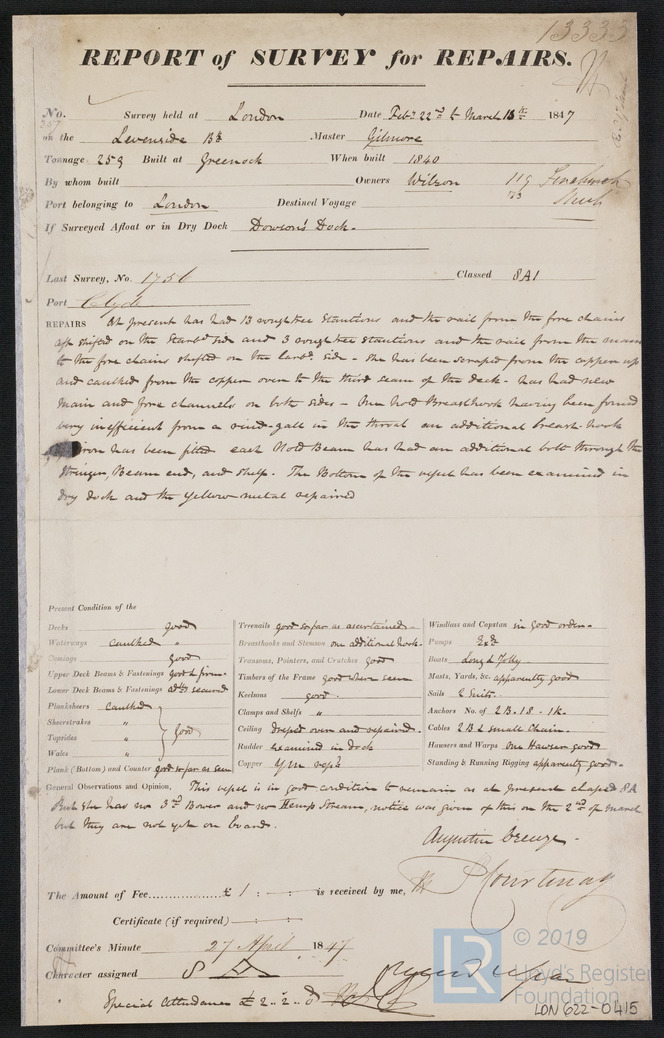 13333
REPORT of SURVEY for REPAIRS.
No. Survey held at London Date Feby. 22nd to March 15th 1847
on the Levenside Bk Master Gilmore
Tonnage 259 Built at Greenock When built 1840
By whom built Owners Wilson 119
Port belonging to London Destined Voyage
If Surveyed Afloat or in Dry Dock Dowson's Dock.
Last Survey, No. 1756 Classed 8A1
Port Clyde
REPAIRS At present has had 13 roughtree stantions and the rail from the fore chains
aft shifted on the Starbd side and 3 roughtree stantions and the rail from the main
to the fore chains shifted on the larbd. side - She has been scraped from the copper up
and caulked from the copper over to the third seam of the deck - has had new
Main and fore channels on both sides - One hold Breasthook having been found
very inefficient from a rind-gall in the throat an additional breast-hook
of iron has been fitted each Hold Beam has had an additional bolt through the
Stringer, Beam end, and shelf. The Bottom of the vessel has been examined in
dry dock and the yellow metal repaired
Present Condition of the
Decks good
Waterways caulked "
Comings good
Upper Deck Beams & Fastenings good & firm
Lower Deck Beams & Fastenings addl. secured
Planksheers caulked
Sheerstrakes "
Topsides " good
Wales "
Plank (Bottom) and Counter good so far as seen
Treenails good so far as ascertained
Breasthooks and Stemson one additional hook
Transoms, Pointers, and Crutches good
Timbers of the Frame good where seen
Keelsons good
Clamps and Shelfs "
Ceiling dreped over and repaired
Rudder examined in dock
Copper Y m repd
Windlass and Capstan in good order
Pumps Exd
Boats Long & Jolly
Masts, Yards, &c. apparently good
Sails 2 Suits
Anchors No. of 2 B. 1 S. 1 k.
Cables 2 B 2 small Chain.
Hausers and Warps One Hawser good
Standing & Running Rigging apparently good
General Observations and Opinion, This vessel is in good condition to remain as at present classed 8A
But she has no 3rd Bower and no Hemp Stream, notice was given of this on the 2nd of March
but they are not yet on board.
Augustin Creuze
The Amount of Fee............... £ 1 : : is received by me, Courtenay
Certificate (if required) : :
Committee's Minute 27 April 1847
Character assigned 8 A
Special Attendance £ 2 .. 2 .. 0
LR © 2019
Lloyd's Register
Foundation
LON 622-0415